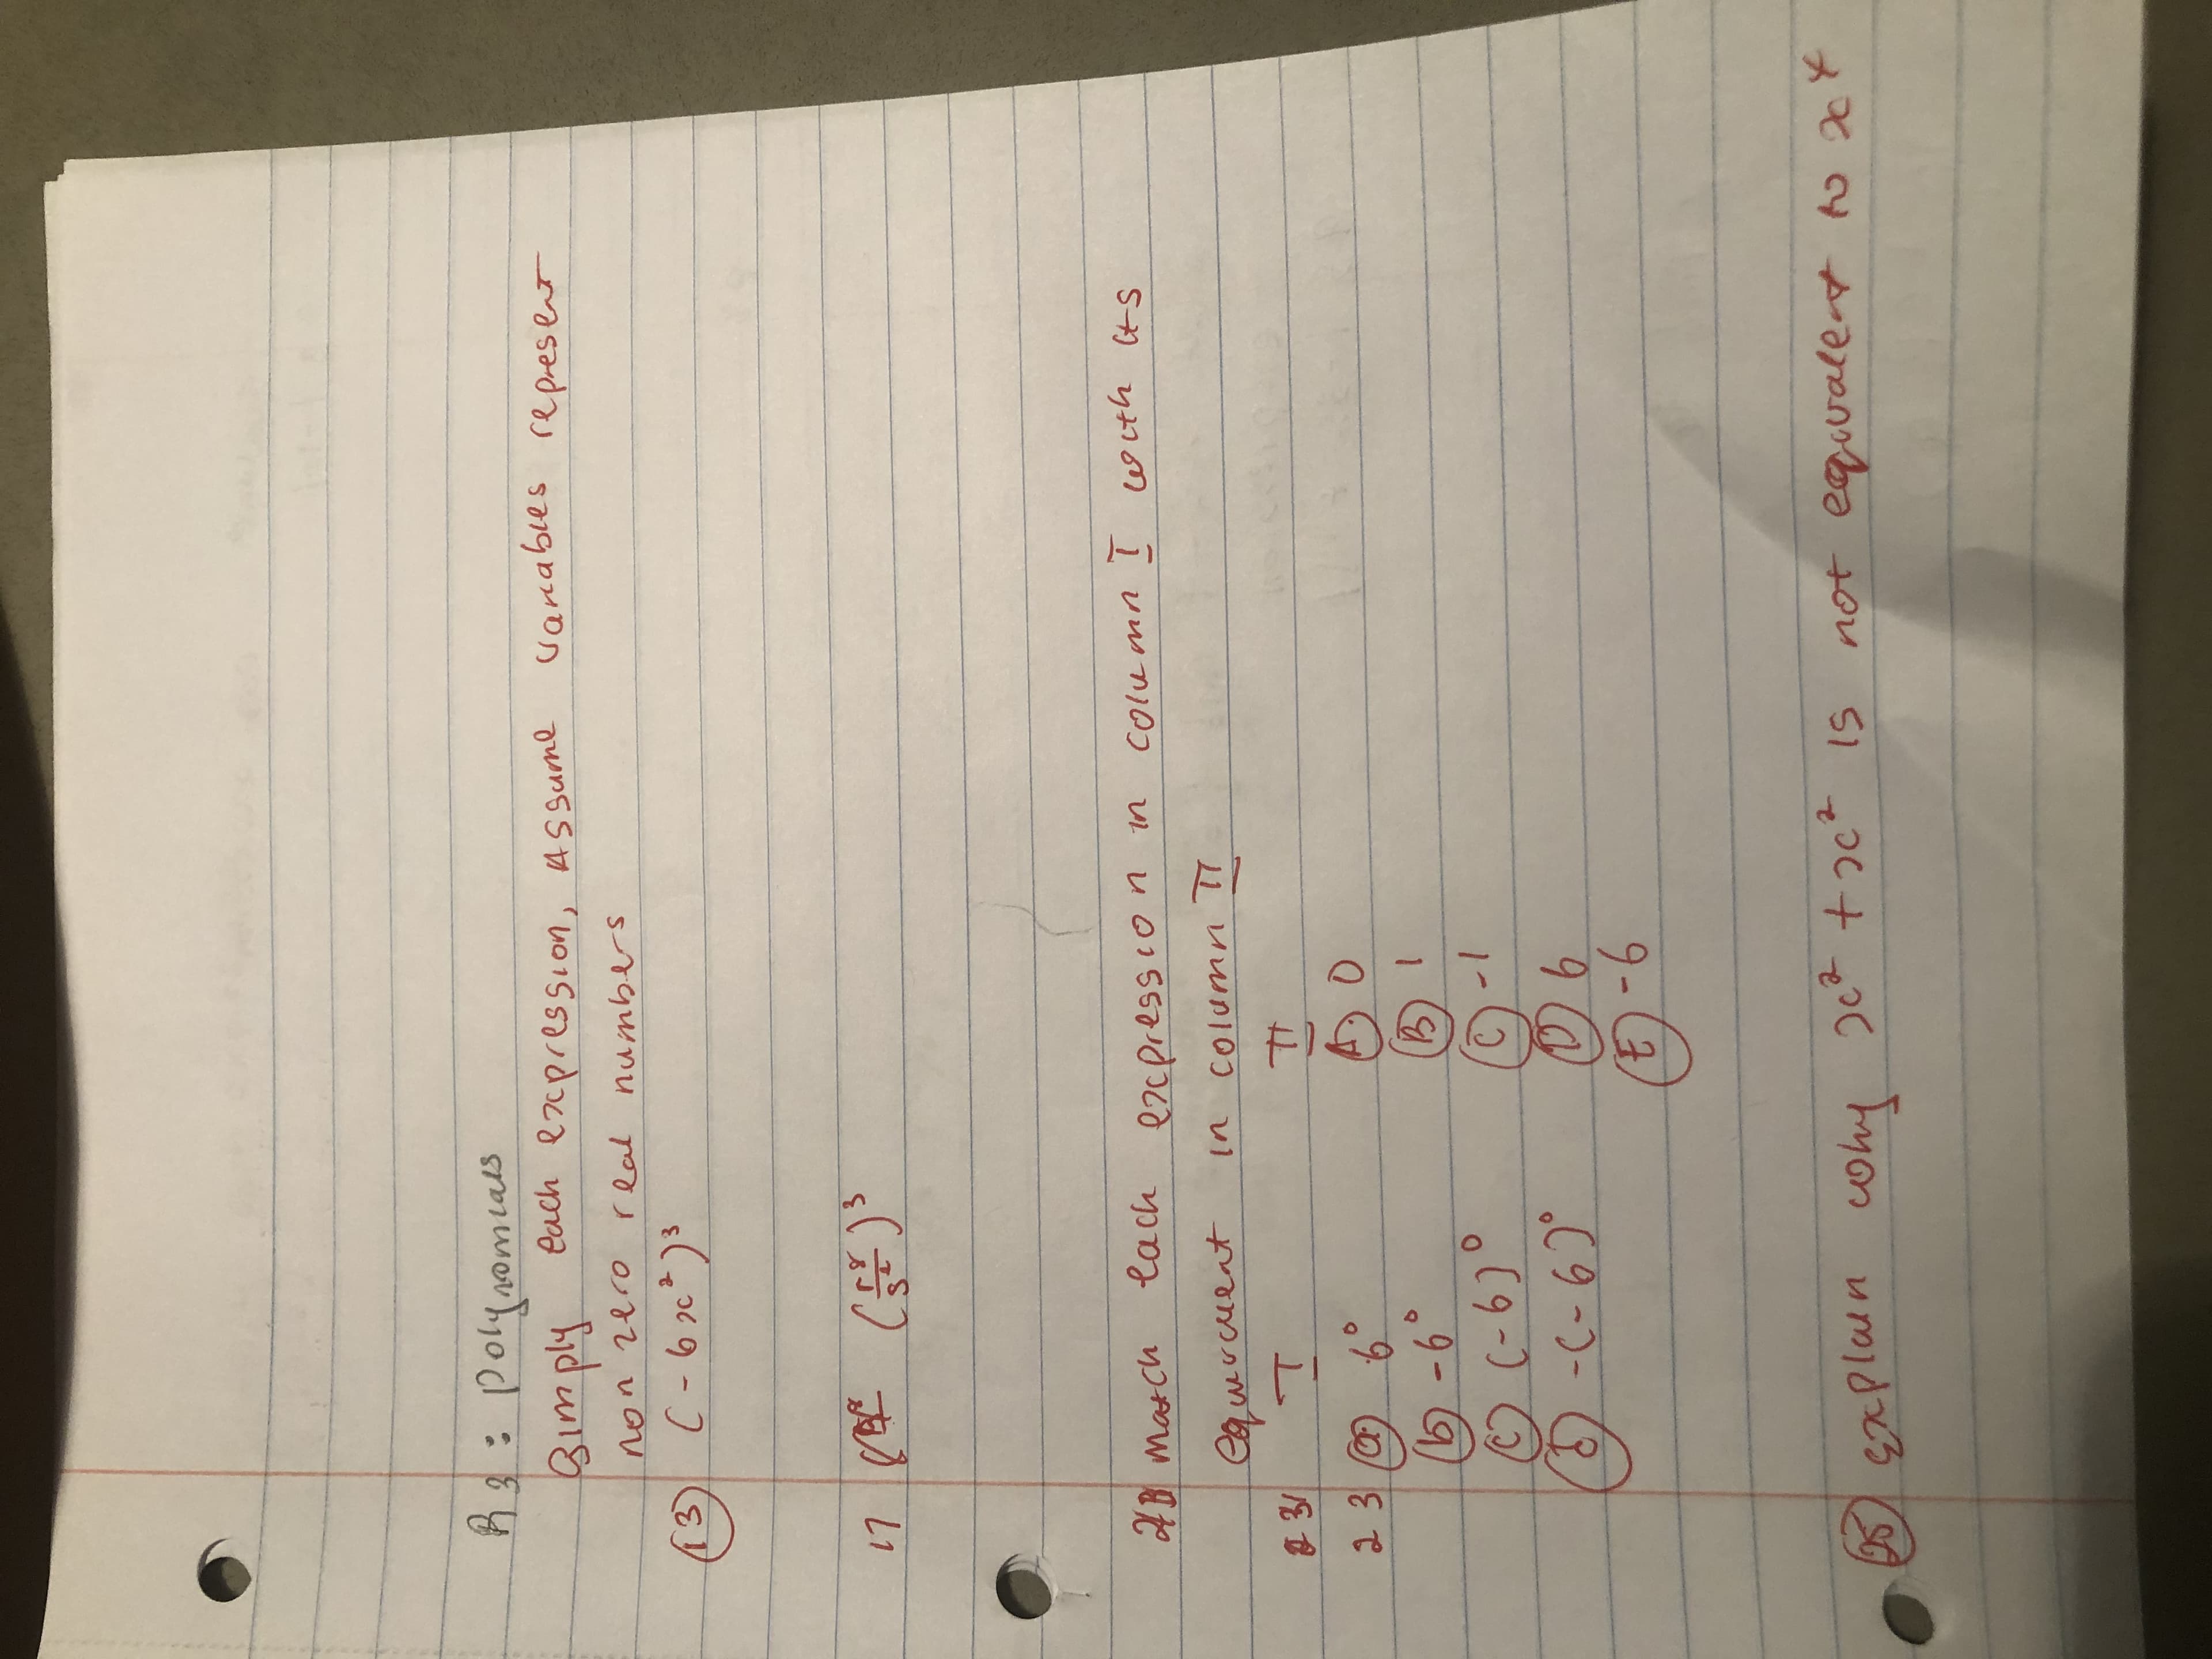 R3: Polynomials
Simply each expression, Assume variables represent
non zero real numbers
(13) (-6x²)³
17 (r⁸/s²)³
match each expression in column I with its
equivalent in column II
I II
23 (a) 6⁰ (A) 0
(b) -6⁰ (B) 1
(c) (-6)⁰ (C) -1
(d) -(-6)⁰ (D) 6
(E) -6
(25) explain why x² + x² is not equivalent to x⁴